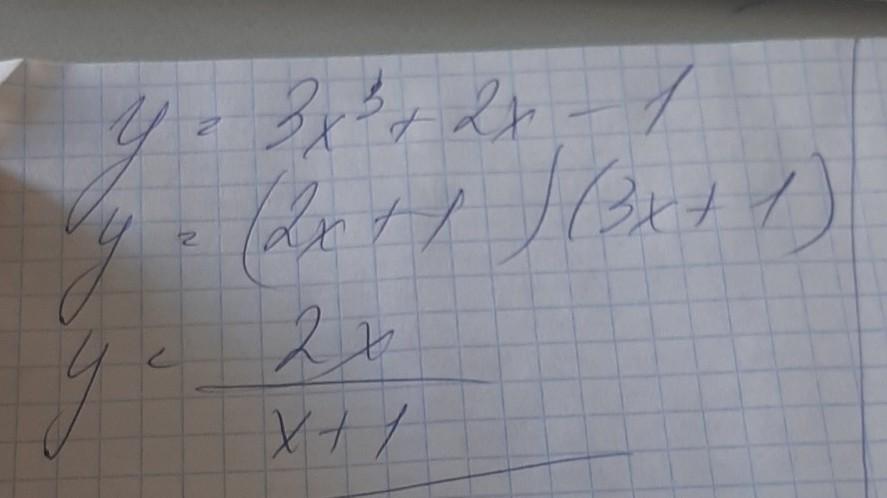 y = 3x³ + 2x - 1
y = (2x + 1)(3x + 1)
y = 2x
x + 1